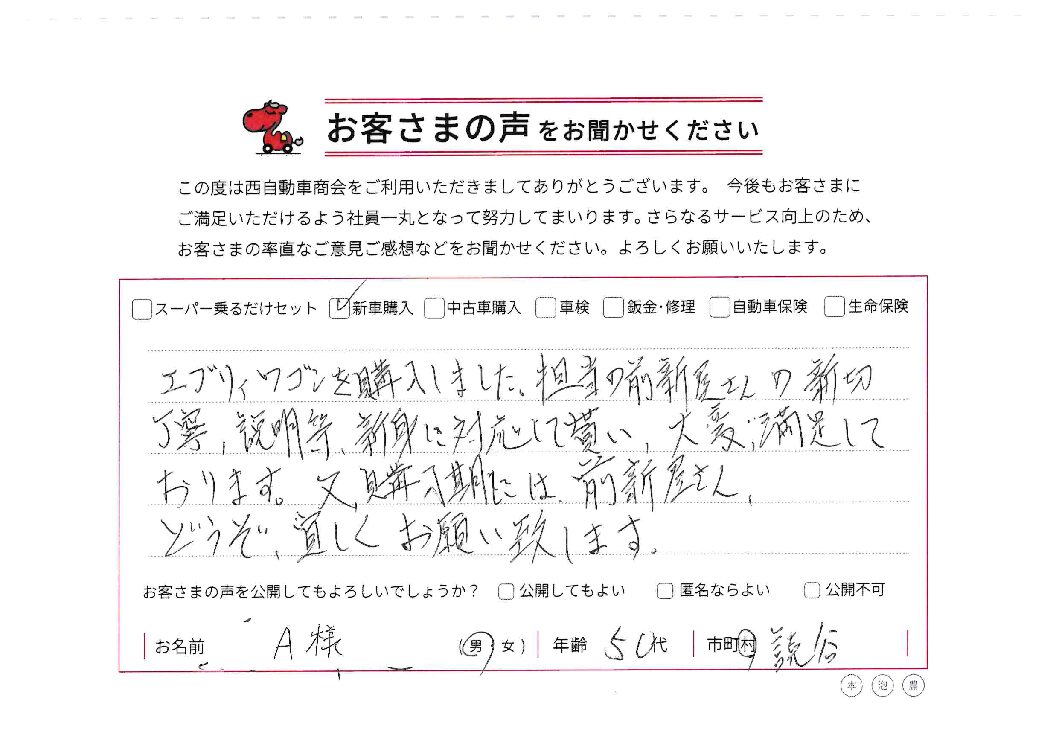 お客さまの声をお聞かせください
この度は西自動車商会をご利用いただきましてありがとうございます。 今後もお客さまに
ご満足いただけるよう社員一丸となって努力してまいります。さらなるサービス向上のため、
お客さまの率直なご意見ご感想などをお聞かせください。よろしくお願いいたします。
スーパー乗るだけセット 新車購入 中古車購入 車検 鈑金・修理 自動車保険 生命保険
エブリィワゴンを購入しました。担当の前新屋さんの新切
丁寧、説明等、新身に対応して貰い、大変、満足して
おります。又、購入期には、前新屋さん、
どうぞ、宜しくお願い致します。
お客さまの声を公開してもよろしいでしょうか? 公開してもよい 匿名ならよい 公開不可
お名前 A様 (男・女) 年齢 50代 市町村 読谷
本 泡 豊